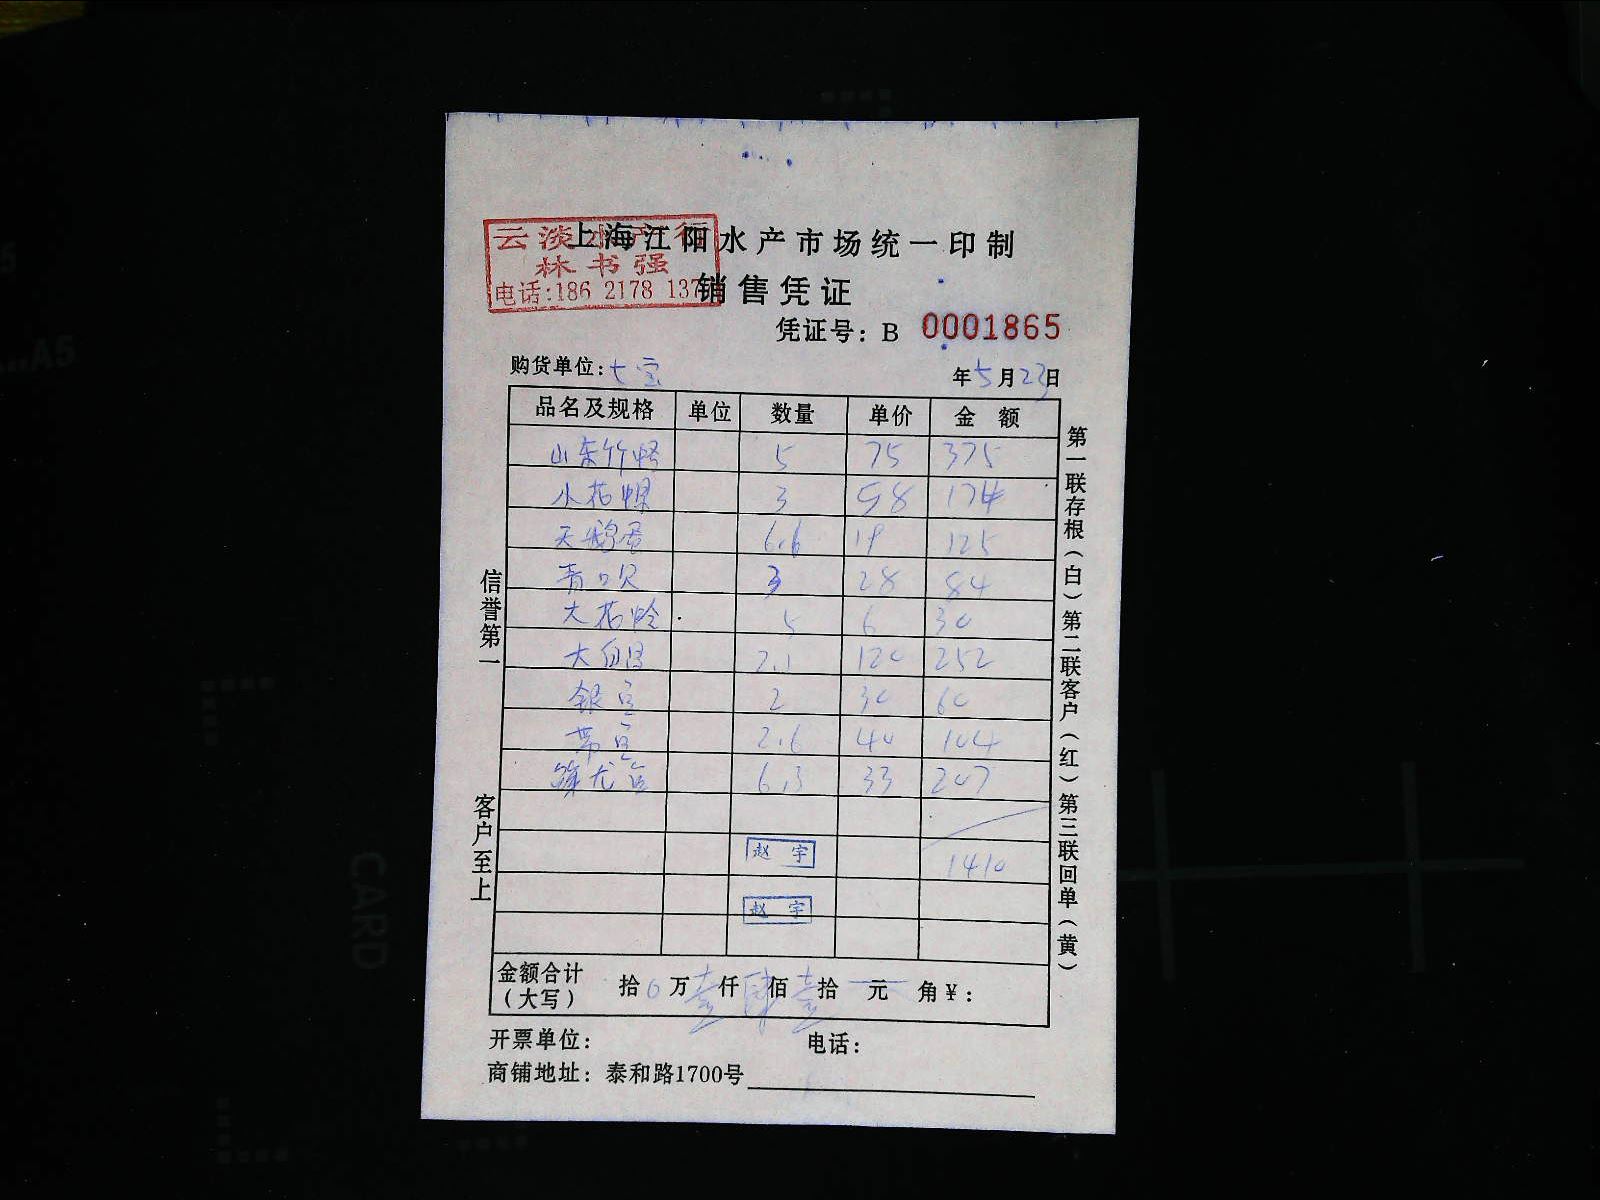 云淡水产行
林书强
电话:186 2178 137
上海江阳水产市场统一印制
销售凭证
凭证号: B 0001865
购货单位: 七宝
年5月23日
品名及规格 单位 数量 单价 金 额
山东竹蛏 5 75 375
小花螺 3 58 174
天鹅蛋 6.6 19 125
青口贝 3 28 84
大花蛤 5 6 30
大 2.1 120 252
银 2 30 60
带 2.6 40 104
尤 6.3 33 207
1410
赵 宇
赵 宇
金额合计
(大写)
拾0万壹仟肆佰壹拾 元 角¥:
开票单位:
电话:
商铺地址: 泰和路1700号
信誉第一
客户至上
第一联存根(白)第二联客户(红)第三联回单(黄)
CARD
A5